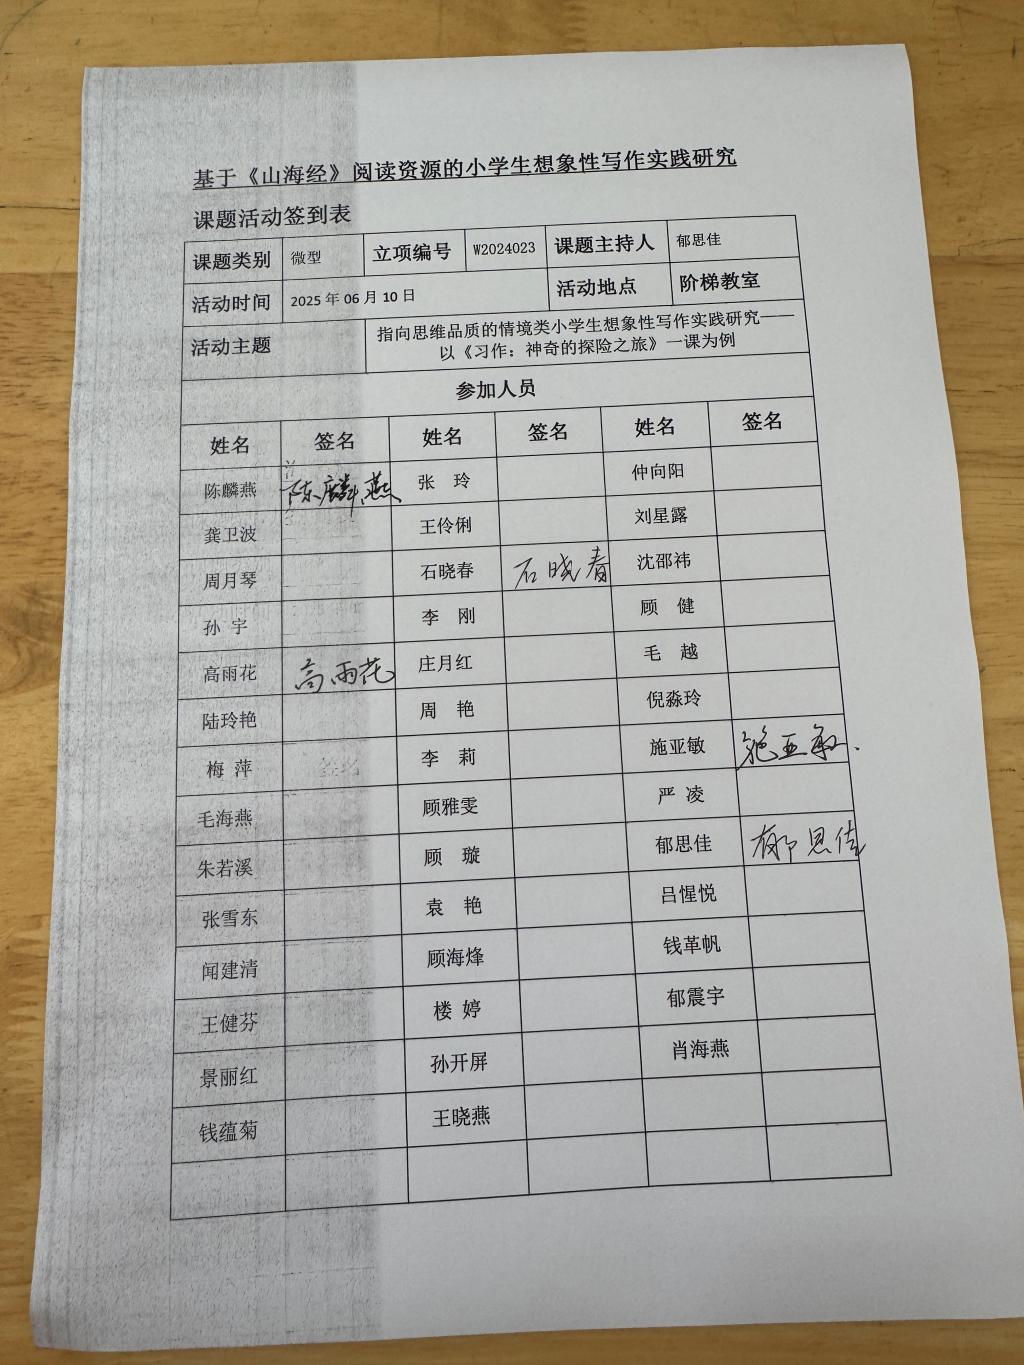 基于《山海经》阅读资源的小学生想象性写作实践研究
课题活动签到表
课题类别 微型 立项编号 W2024023 课题主持人 郁思佳
活动时间 2025 年 06 月 10 日 活动地点 阶梯教室
活动主题 指向思维品质的情境类小学生想象性写作实践研究——
以《习作：神奇的探险之旅》一课为例
参加人员
姓名 签名 姓名 签名 姓名 签名
陈麟燕 陈麟燕 张 玲 仲向阳
龚卫波 王伶俐 刘星露
周月琴 石晓春 石晓春 沈邵祎
孙 宇 李 刚 顾 健
高雨花 高雨花 庄月红 毛 越
陆玲艳 周 艳 倪淼玲
梅 萍 李 莉 施亚敏 施亚敏
毛海燕 顾雅雯 严 凌
朱若溪 顾 璇 郁思佳 郁思佳
张雪东 袁 艳 吕惺悦
闻建清 顾海烽 钱革帆
王健芬 楼 婷 郁震宇
景丽红 孙开屏 肖海燕
钱蕴菊 王晓燕